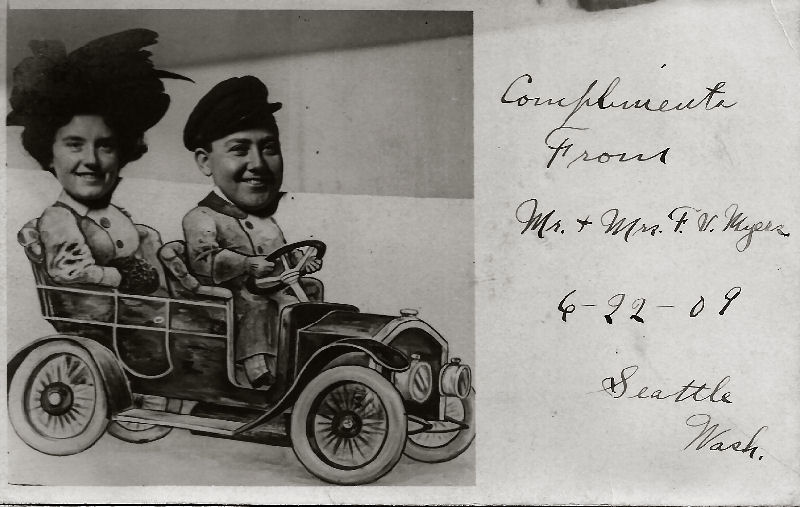 Compliments
From
Mr. + Mrs. F. V. Myers
6-22-09
Seattle
Wash.